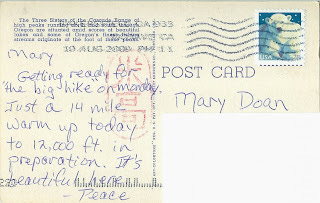 The Three Sisters of the Cascade Range of
high peaks running
Oregon are situated amid scenes of beautiful
lakes and some of Oregon's finest fishing
streams originate at the foot of these peaks.
10 AUG 2009 PM 11
Mary
Getting ready for
the big hike on monday.
Just a 14 mile
warm up today
to 12,000 ft. in
preparation. It's
beautiful here.
- Peace
POST CARD
Mary Doan